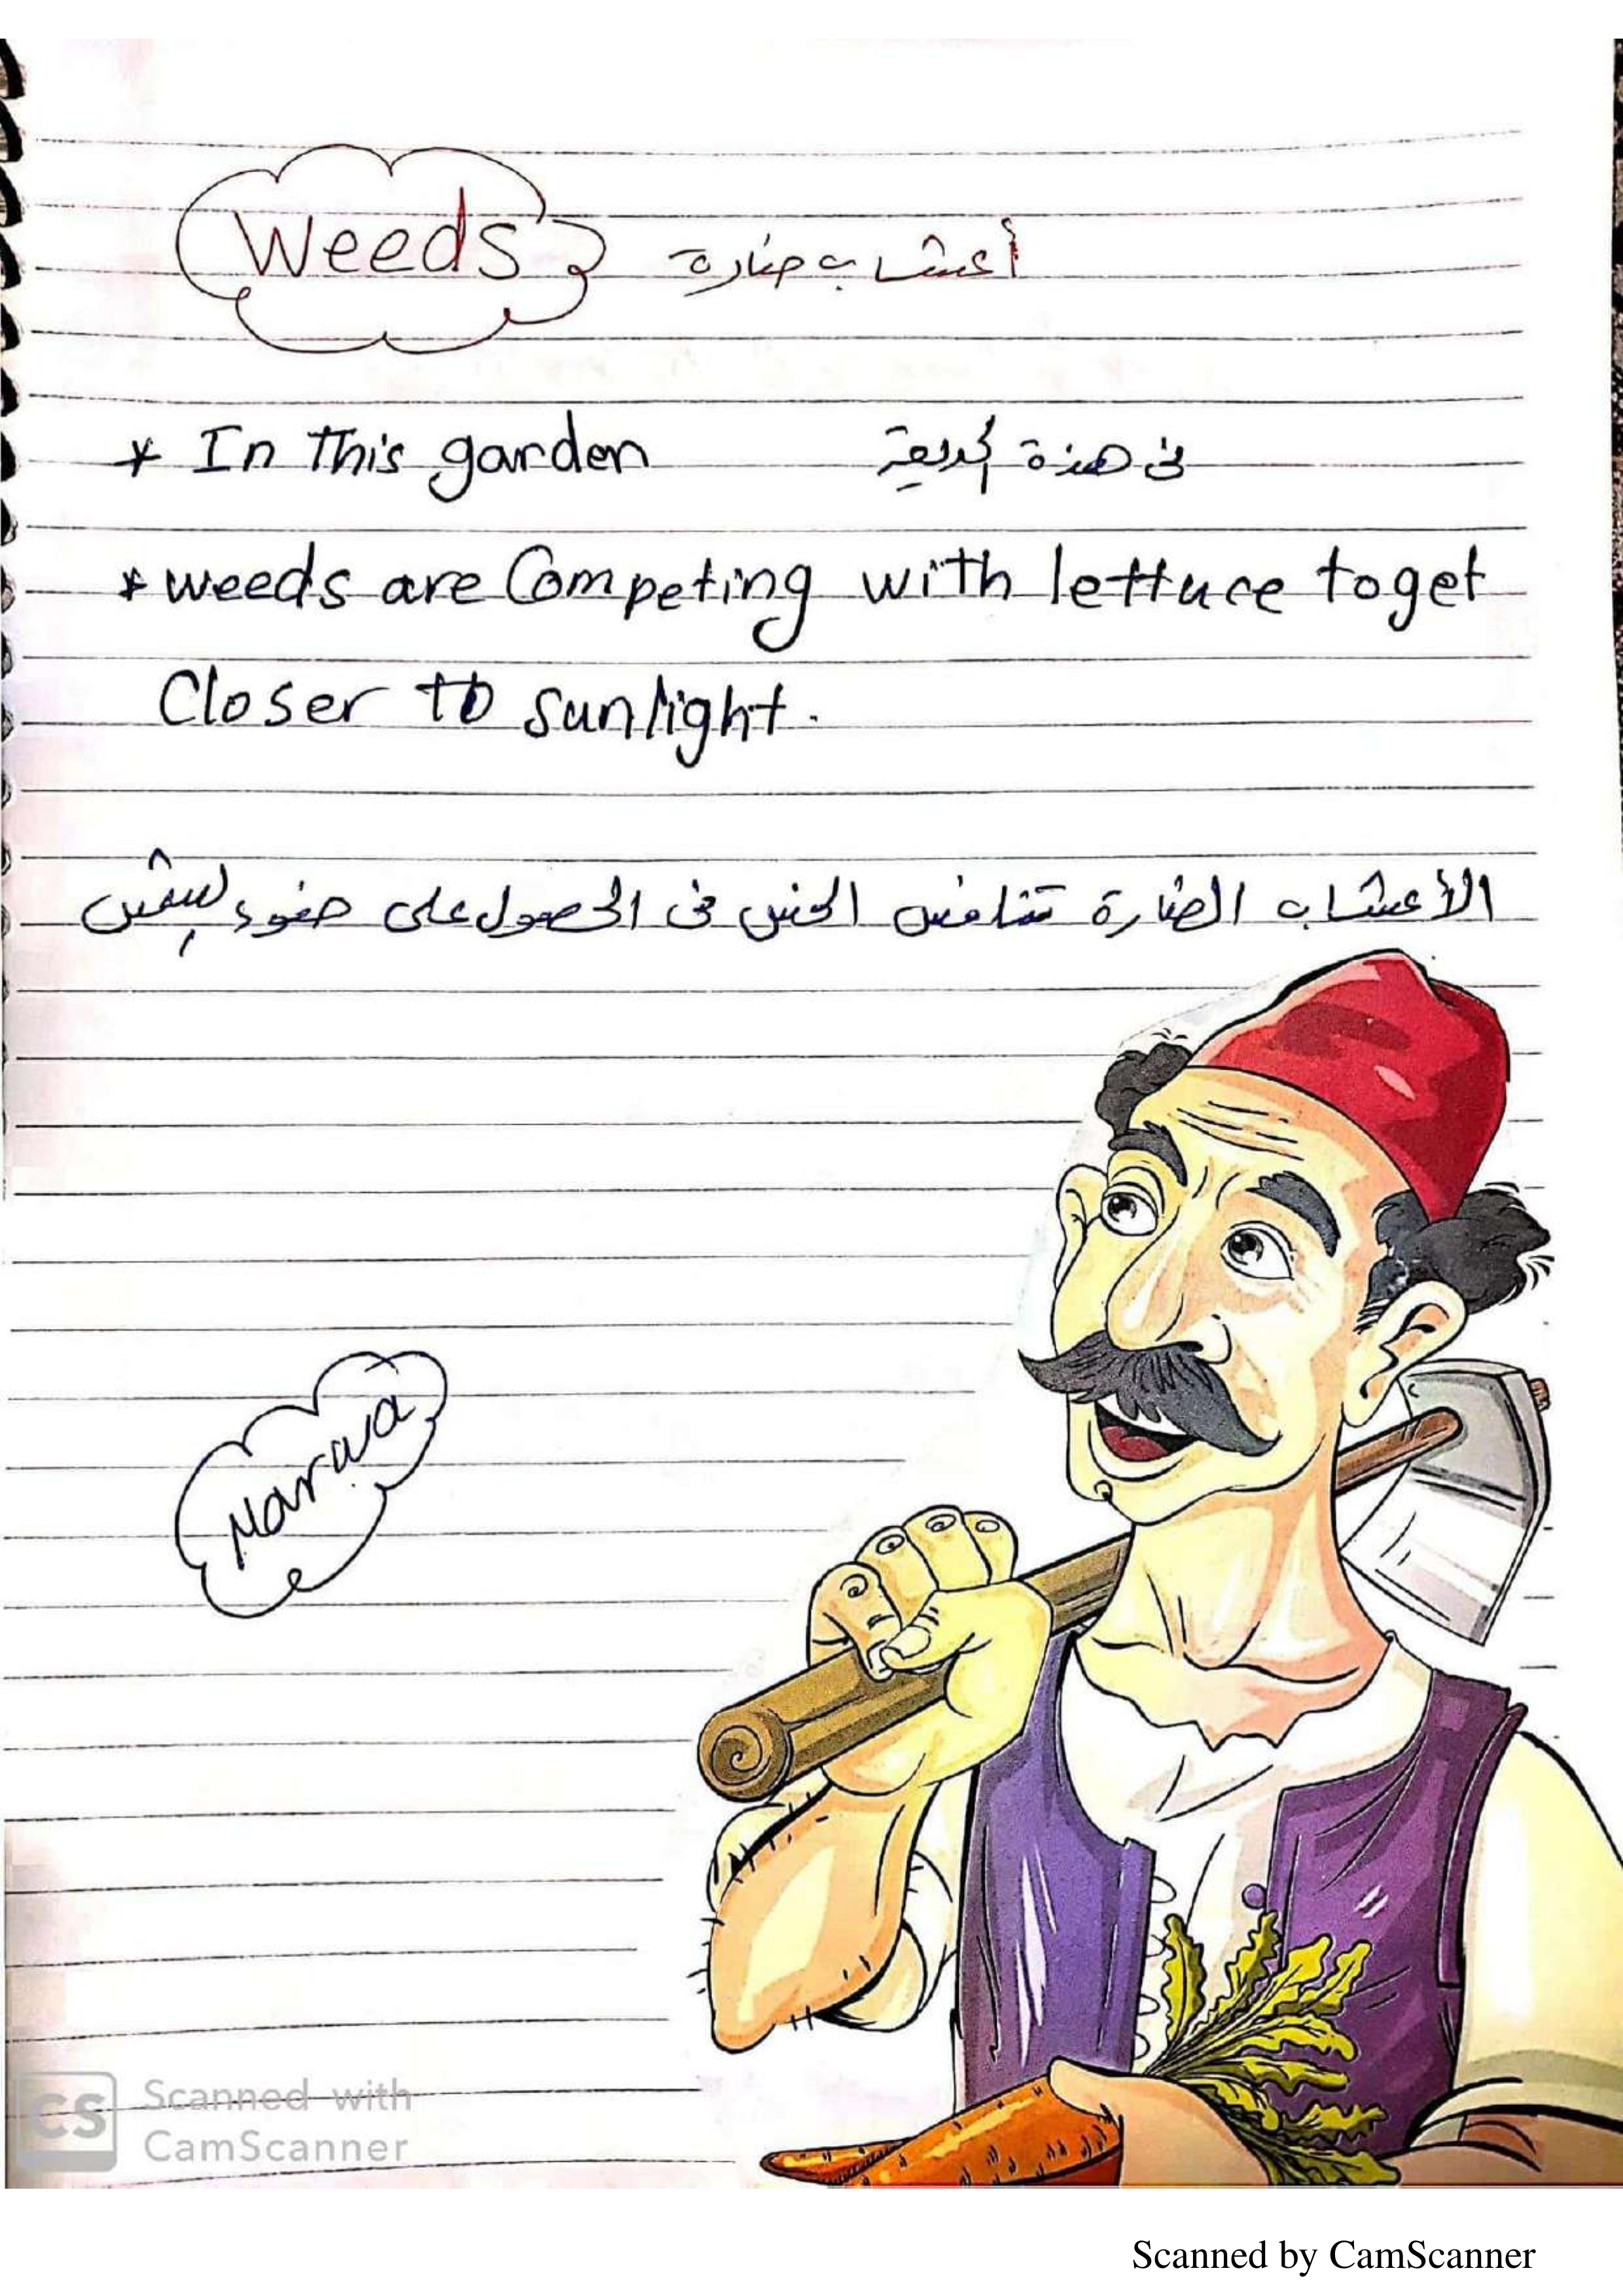 Weeds أعشاب ضارة
* In This garden في هذة الحديقة
* weeds are Competing with lettuce toget
Closer to sunlight.
الأعشاب الضارة تتنافس الخس فى الحصول على ضوء لشمس
Marwa
CS Scanned with
CamScanner
Scanned by CamScanner